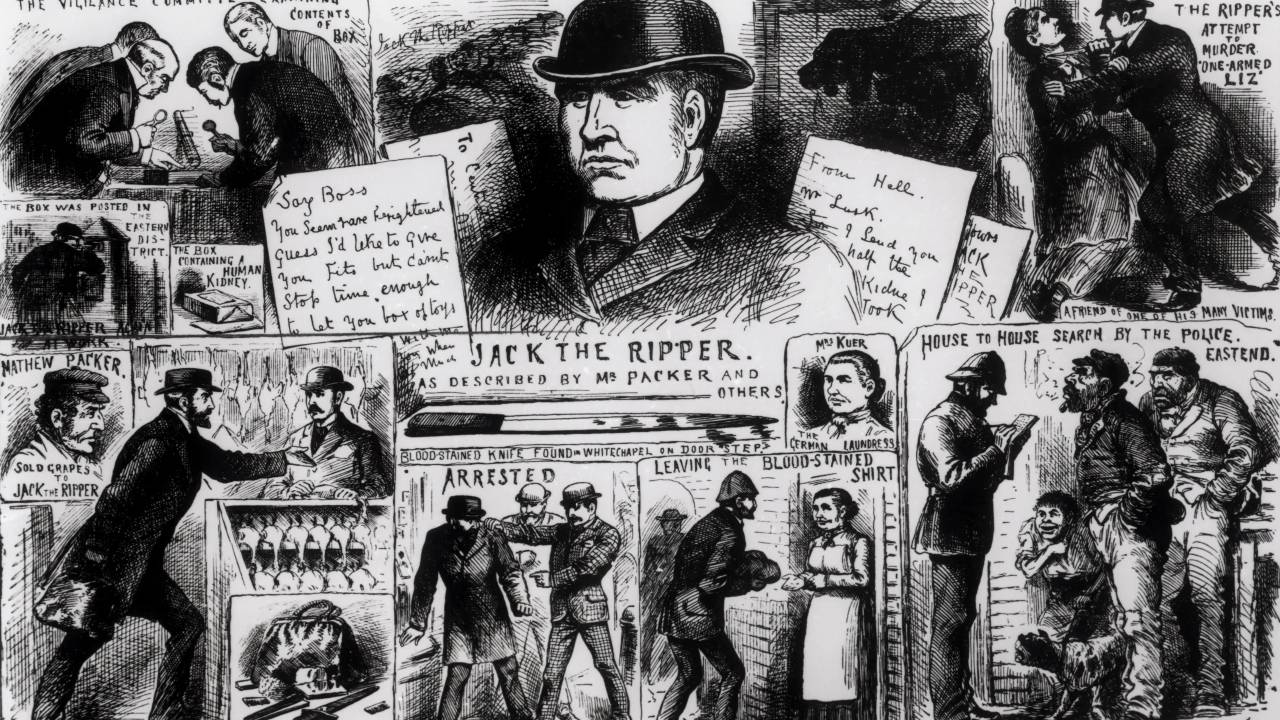 THE VIGILANCE COMMITTEE EXAMINING
CONTENTS
OF
BOX
THE BOX WAS POSTED IN
THE
EASTERN
DIS-
TRICT.
JACK THE RIPPER
AT WORK
THE BOX
CONTAINING A
HUMAN
KIDNEY.
Jack the Ripper
To
Say Boss
You Seem rare frightened
guess I'd like to give
you fits but can't
Stop time enough
to let you box of toys
From Hell.
Mr Lusk.
I Send you
half the
Kidne I
Took
yours
JACK
THE
RIPPER
THE RIPPER'S
ATTEMPT
TO
MURDER.
"ONE-ARMED
LIZ"
A FRIEND OF ONE OF HIS MANY VICTIMS.
MATHEW PACKER.
SOLD GRAPES
TO
JACK THE RIPPER
when
JACK THE RIPPER.
AS DESCRIBED BY Mr PACKER AND
OTHERS
BLOOD-STAINED KNIFE FOUND IN WHITECHAPEL ON DOOR STEP.
Mrs KUER
THE
GERMAN LAUNDRESS
ARRESTED
LEAVING THE BLOOD-STAINED
SHIRT
HOUSE TO HOUSE SEARCH BY THE POLICE.
EASTEND.